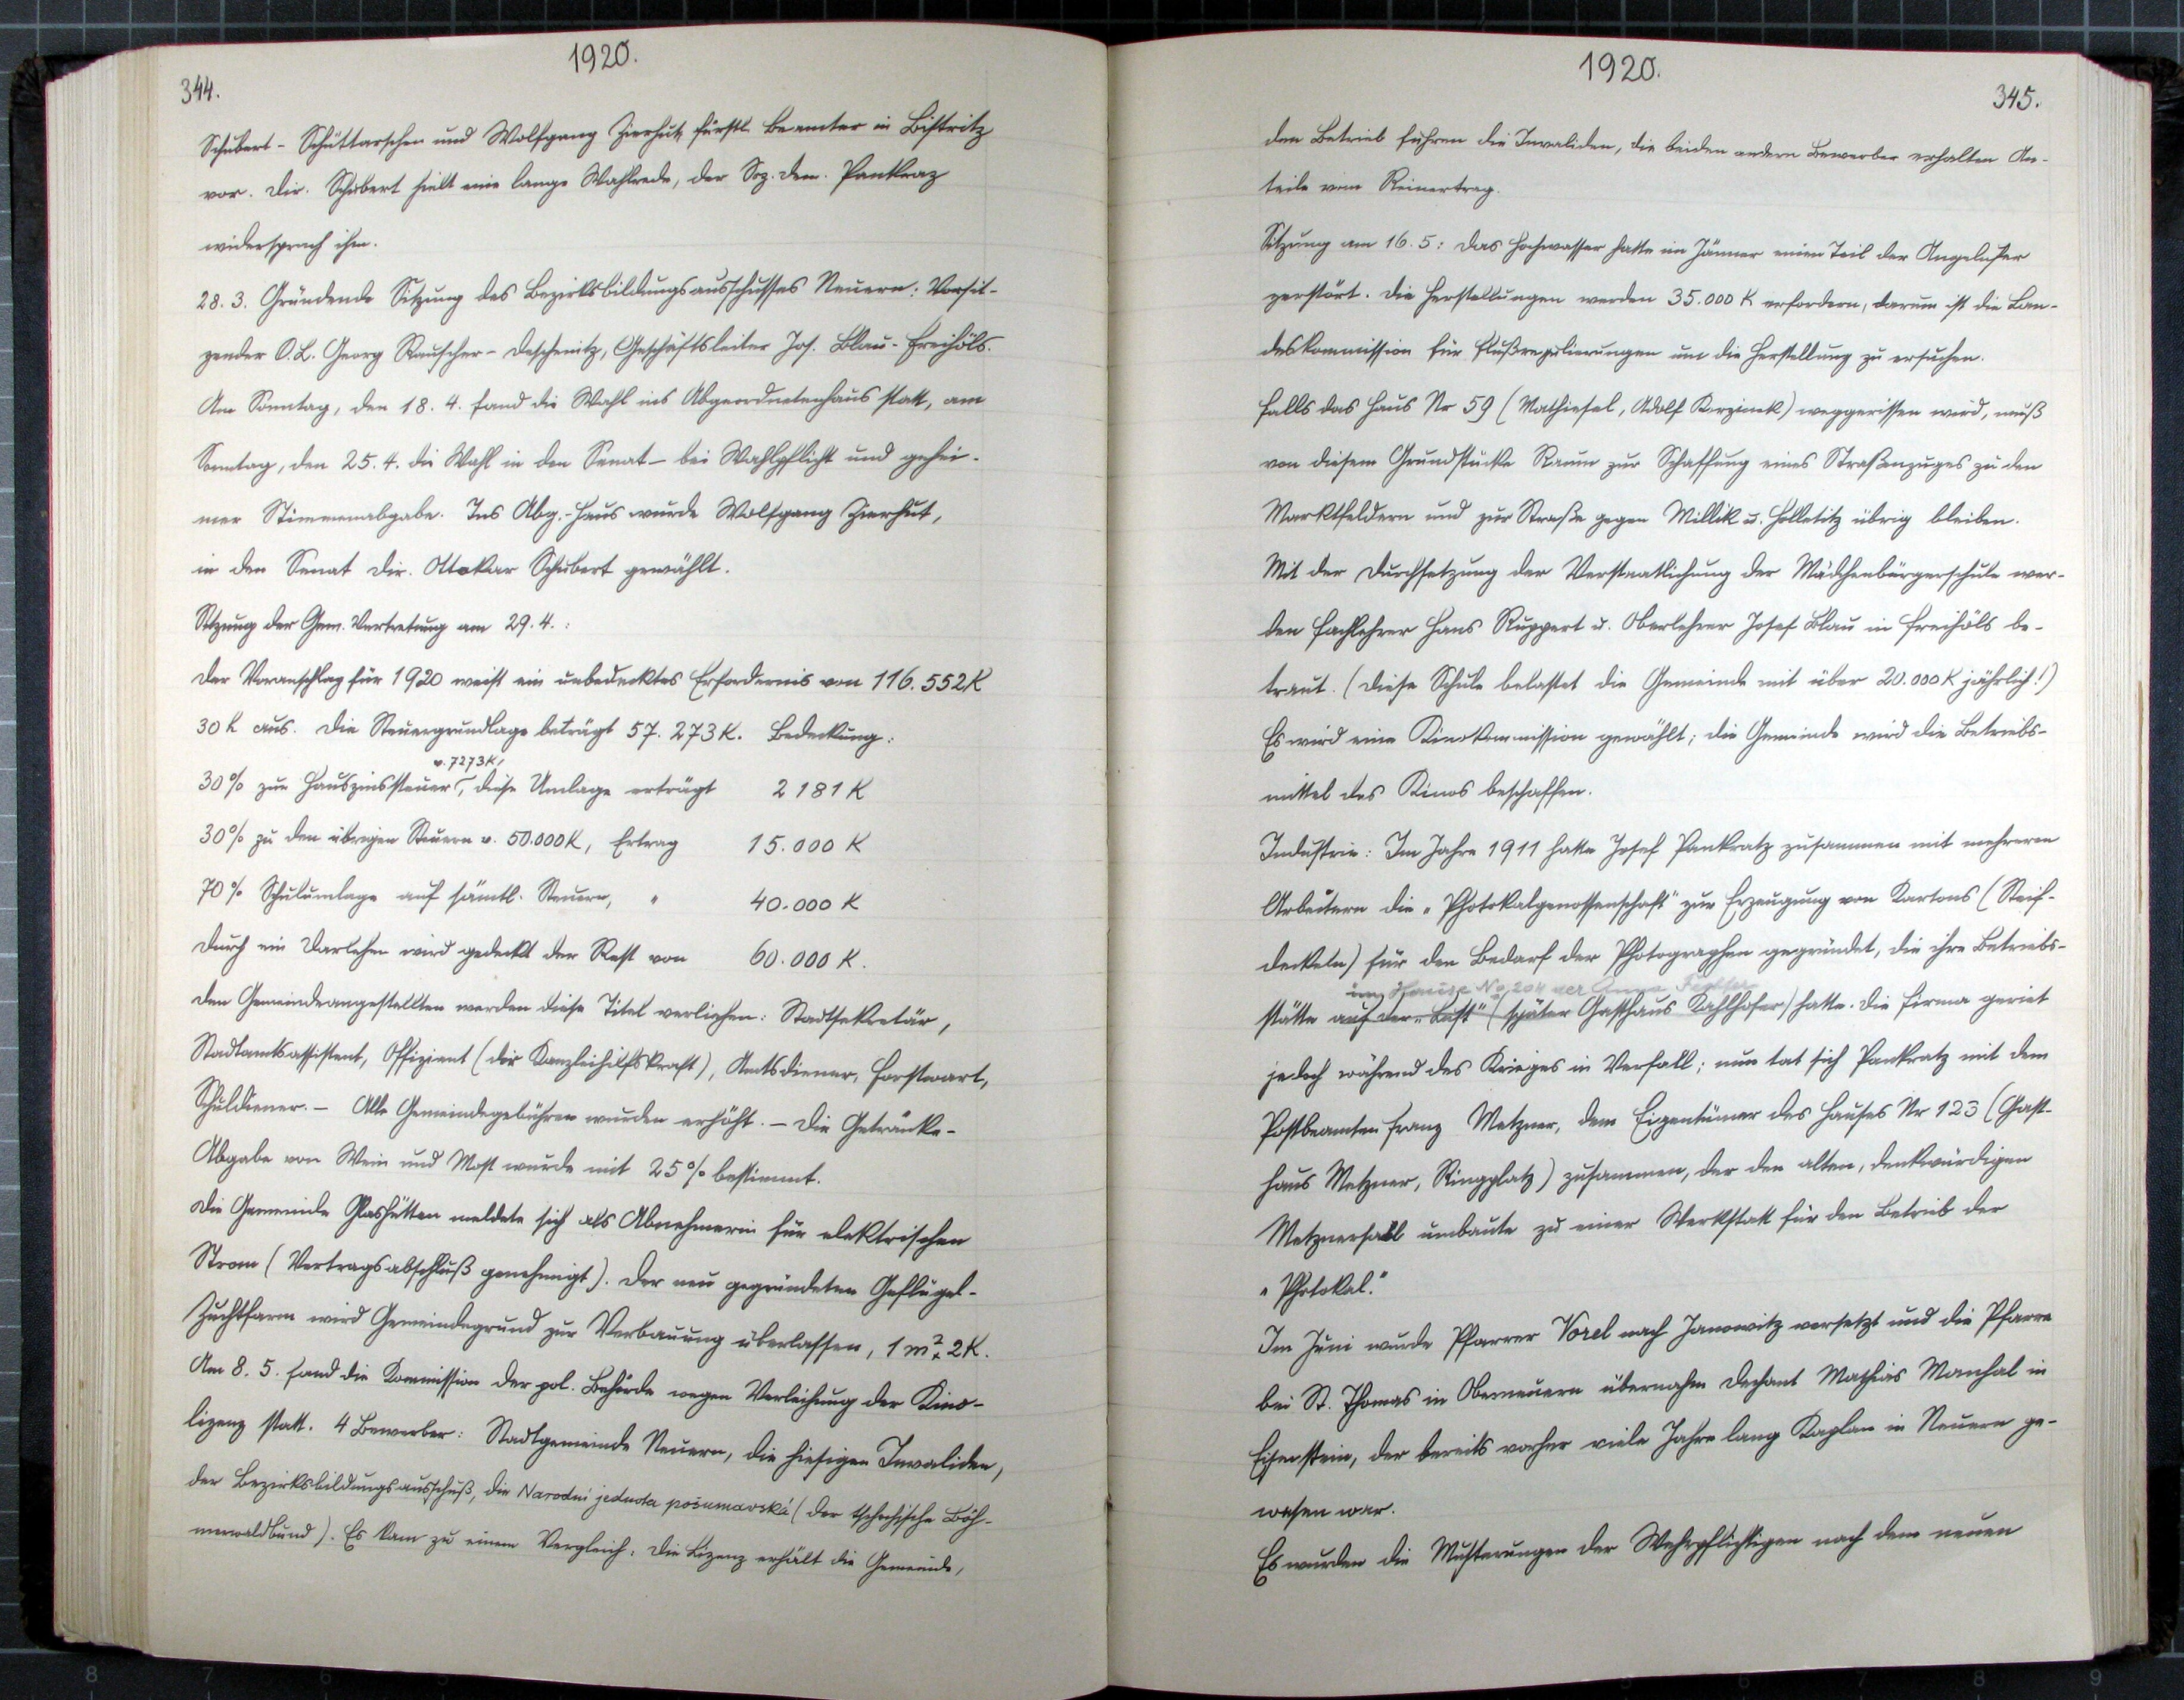 1920.
344.
Schubert - Schüttarschen und Wolfgang Zierhut, fürstl. Beamter in Bistritz
vor. Dir. Schubert hielt eine lange Wahlrede, der Soz. dem. Pankraz
widersprach ihm.
28. 3. Gründende Sitzung des Bezirksbildungsausschusses Neuern: Vorsit-
zender O.L. Georg Rauscher - Deschenitz, Geschäftsleiter Jos. Blau - Freihöls.
Am Sonntag, den 18. 4. fand die Wahl ins Abgeordnetenhaus statt, am
Sonntag, den 25. 4. die Wahl in den Senat - bei Wahlpflicht und gehei-
mer Stimmenabgabe. Ins Abg.-Haus wurde Wolfgang Zierhut,
in den Senat Dir. Ottokar Schubert gewählt.
Sitzung der Gem. Vertretung am 29. 4.:
Der Voranschlag für 1920 weist ein unbedecktes Erfordernis von 116.552 K
30 h aus. Die Steuergrundlage beträgt 57.273 K. Bedeckung:
v. 7273 K,
30 % zur Hauszinssteuer, diese Umlage erträgt 2181 K
30 % zu den übrigen Steuern v. 50.000 K, Ertrag 15.000 K
70 % Schulumlage auf sämtl. Steuern, " 40.000 K
Durch ein Darlehen wird gedeckt der Rest von 60.000 K.
Den Gemeindeangestellten werden diese Titel verliehen: Stadtsekretär,
Stadtamtsassistent, Offiziant (die Kanzleihilfskraft), Amtsdiener, Forstwart,
Schuldiener. - Alle Gemeindegebühren wurden erhöht. - Die Getränke-
Abgabe von Wein und Most wurde mit 25 % bestimmt.
Die Gemeinde Glashütten meldete sich als Abnehmerin für elektrischen
Strom (Vertragsabschluß genehmigt). Der neu gegründeten Geflügel-
Zuchtfarm wird Gemeindegrund zur Verbauung überlassen, 1 m² 2 K.
Am 8. 5. fand die Kommission der pol. Behörde wegen Verleihung der Kino-
lizenz statt. 4 Bewerber: Stadtgemeinde Neuern, die hiesigen Invaliden,
der Bezirksbildungsausschuß, die Narodni jednota pošumavská (der tschechische Böh-
merwaldbund). Es kam zu einem Vergleich: Die Lizenz erhält die Gemeinde,
1920.
345.
den Betrieb führen die Invaliden, die beiden andern Bewerber erhalten An-
teile vom Reinertrag.
Sitzung am 16. 5: Das Hochwasser hatte im Jänner einen Teil der Angelufer
zerstört. Die Herstellungen werden 35.000 K erfordern, darum ist die Lan-
deskommission für Flußregulierungen um die Herstellung zu ersuchen.
Falls das Haus Nr 59 (Mathiesel, Adolf Korzinek) weggerissen wird, muß
von diesem Grundstücke Raum zur Schaffung eines Straßenzuges zu den
Marktfeldern und zur Straße gegen Millik u. Holletitz übrig bleiben.
Mit der Durchsetzung der Verstaatlichung der Mädchenbürgerschule wer-
den Fachlehrer Hans Ruppert u. Oberlehrer Josef Blau in Freihöls be-
traut. (Diese Schule belastet die Gemeinde mit über 20.000 K jährlich!)
Es wird eine Kinokommission gewählt; die Gemeinde wird die Betriebs-
mittel des Kinos beschaffen.
Industrie: Im Jahre 1911 hatte Josef Pankratz zusammen mit mehreren
Arbeitern die „Photokalgenossenschaft" zur Erzeugung von Kartons (Steif-
deckeln) für den Bedarf der Photographen gegründet, die ihre Betriebs-
im Hause No 204 der Anna
stätte auf der „Bast" (später Gasthaus Kahlhofer) hatte. Die Firma geriet
jedoch während des Krieges in Verfall; nun tat sich Pankratz mit dem
Postbeamten Franz Metzner, dem Eigentümer des Hauses Nr 123 (Gast-
haus Metzner, Ringplatz) zusammen, der den alten, denkwürdigen
Metznersaal umbaute zu einer Werkstatt für den Betrieb der
„Photokal."
Im Juni wurde Pfarrer Vorel nach Janowitz versetzt und die Pfarre
bei St. Thomas in Oberneuern übernahm Dechant Mathias Manhal in
Eisenstein, der bereits vorher viele Jahre lang Kaplan in Neuern ge-
wesen war.
Es wurden die Musterungen der Wehrpflichtigen nach dem neuen